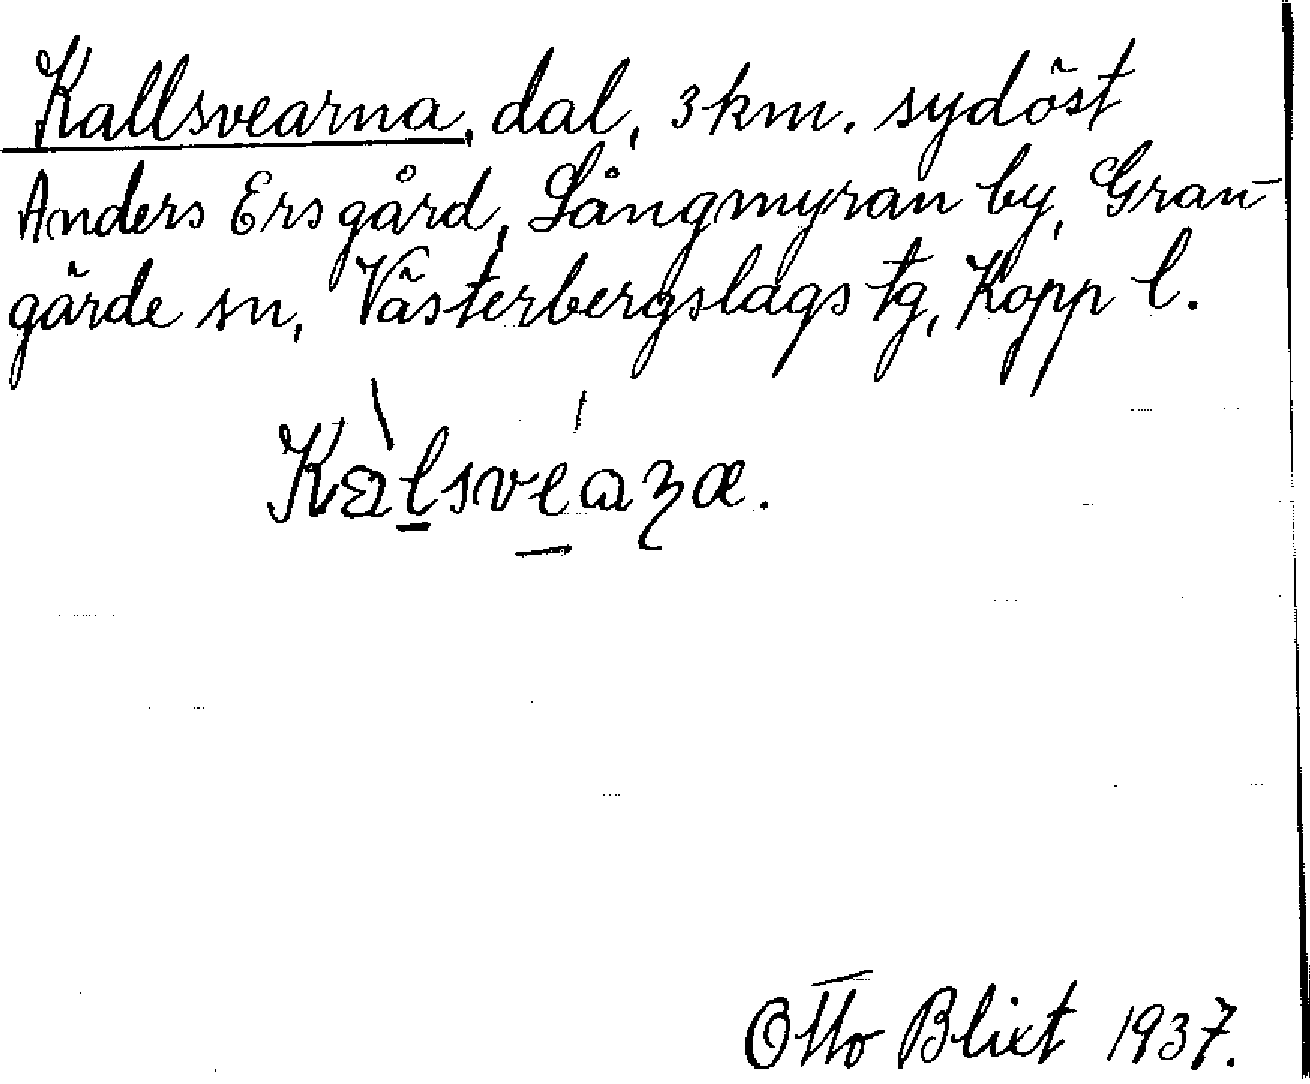 Kallsvearna, dal, 3 km. sydöst
Anders Ersgård, Långmyran by, Gran-
gärde sn, Västerbergslags tg, Kopp l.
Otto Blixt 1937.